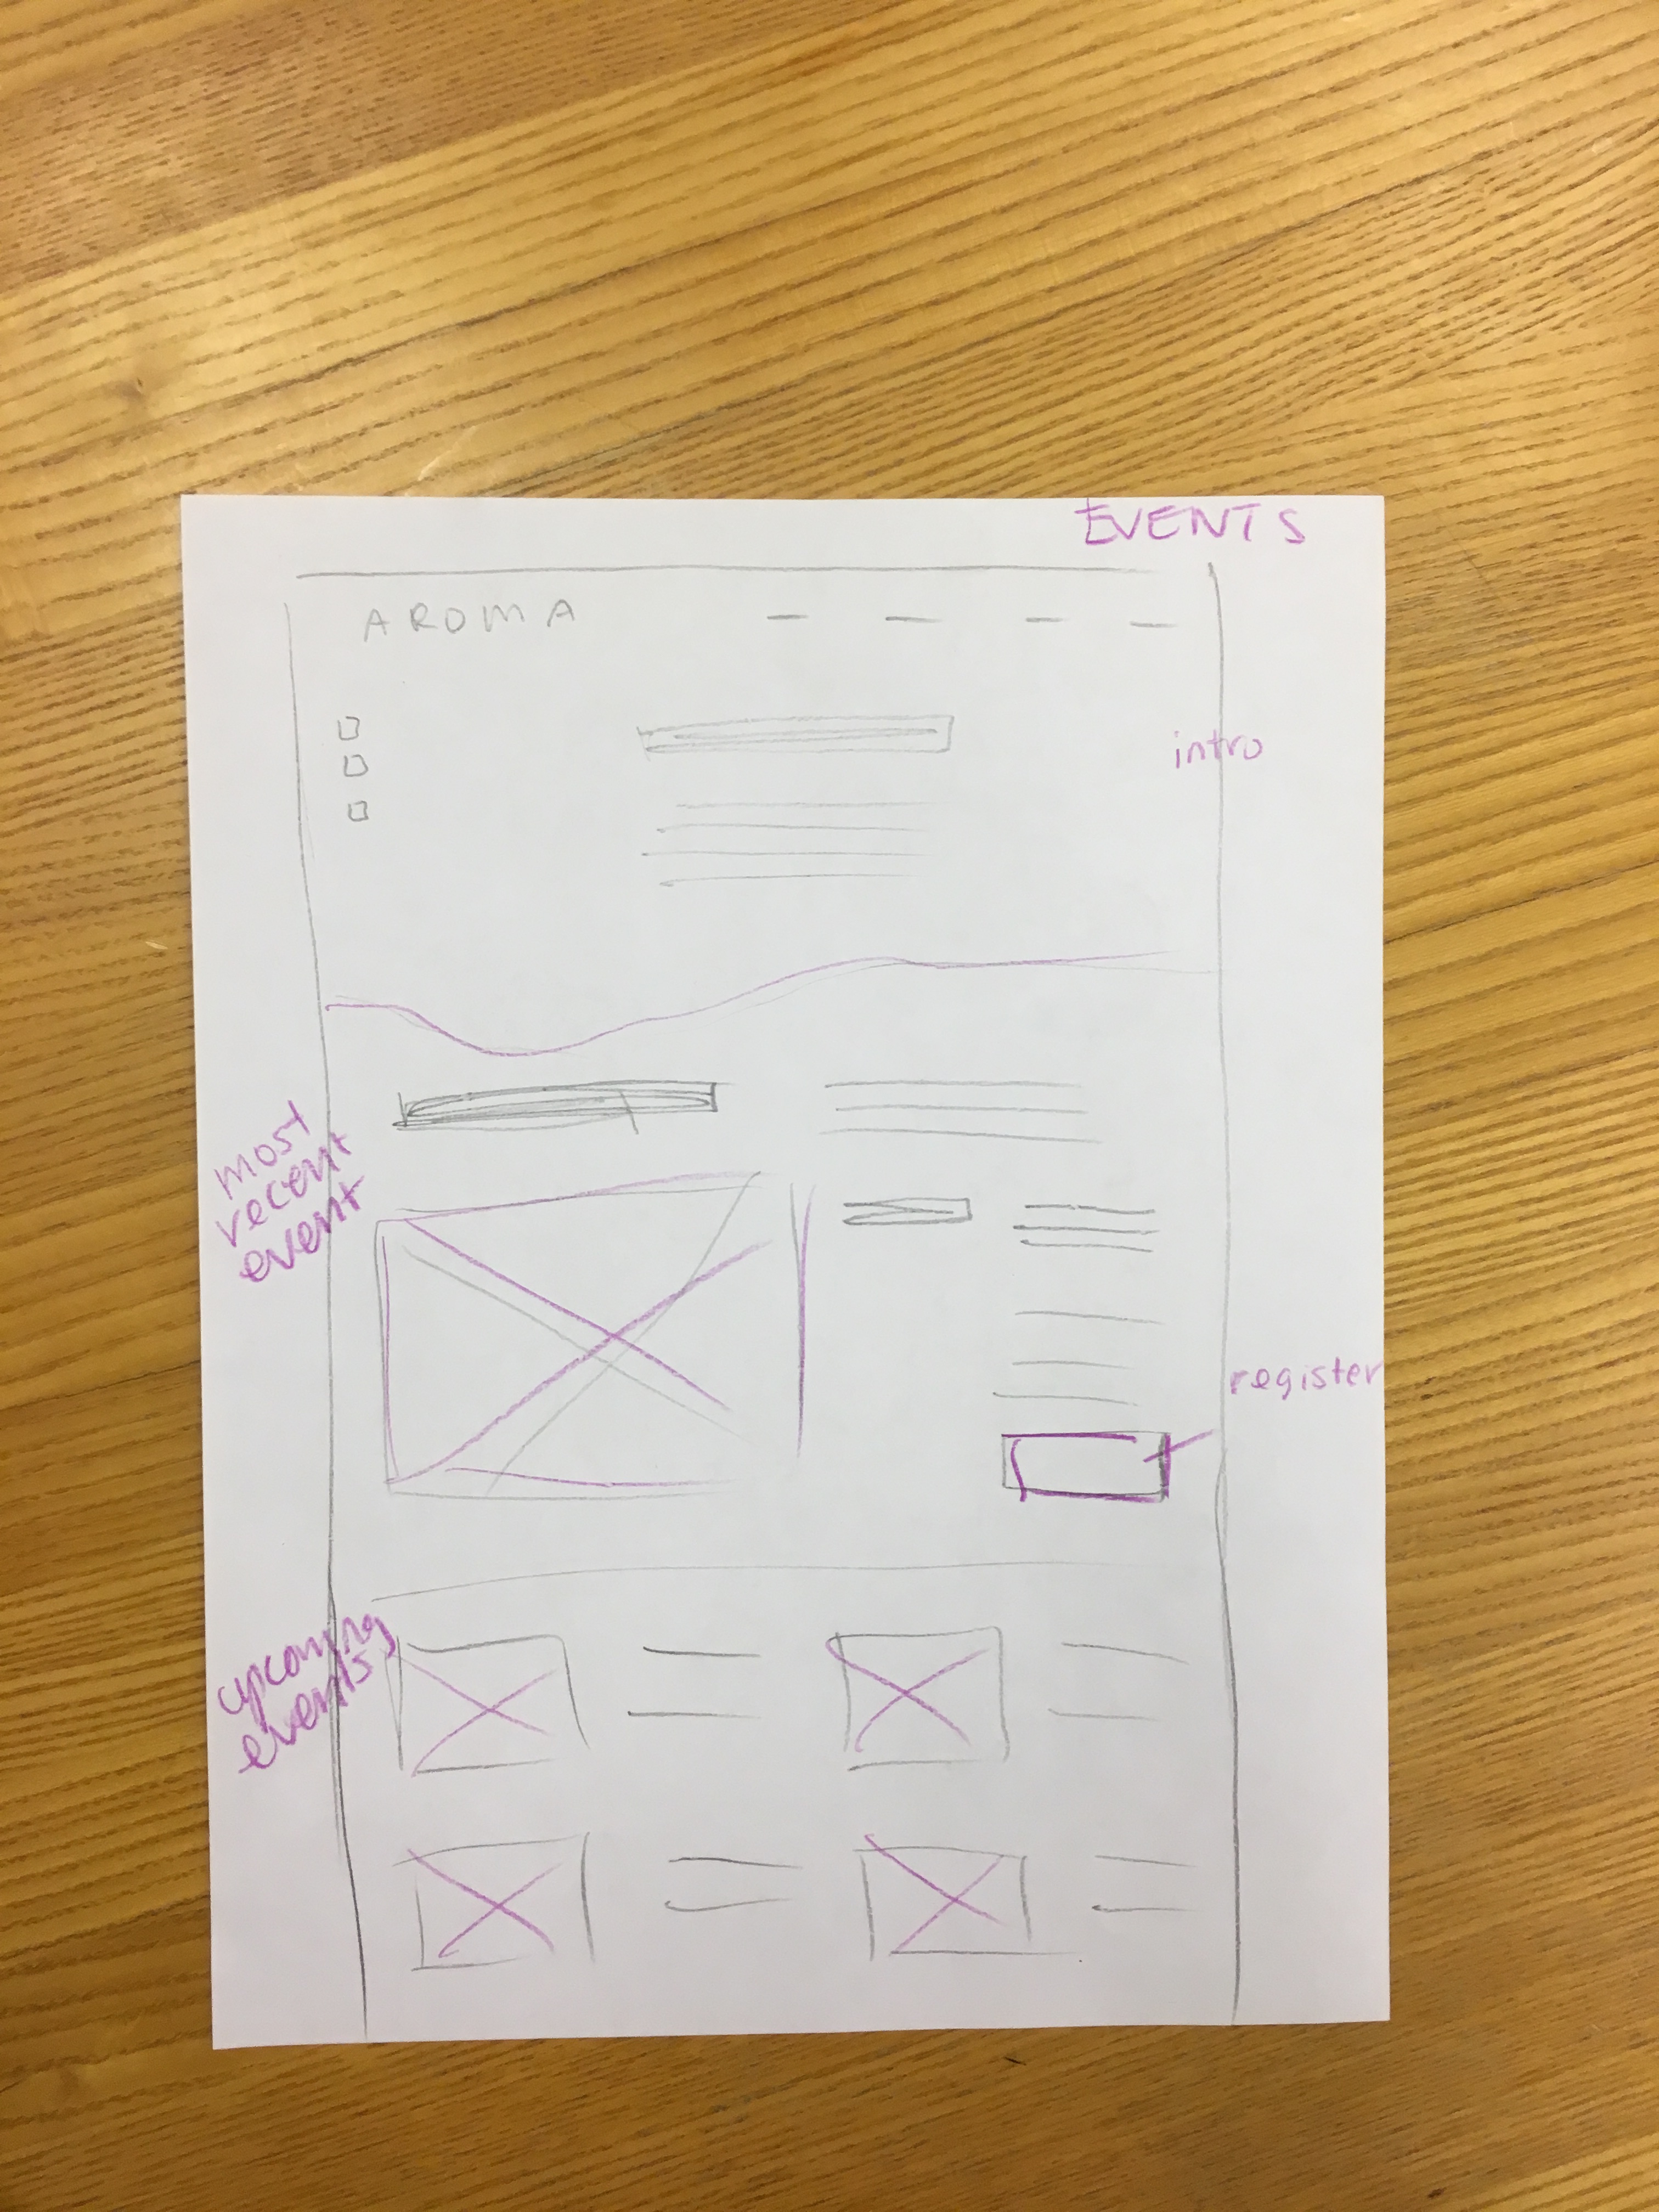 EVENTS
AROMA
intro
most
recent
event
register
upcoming
events